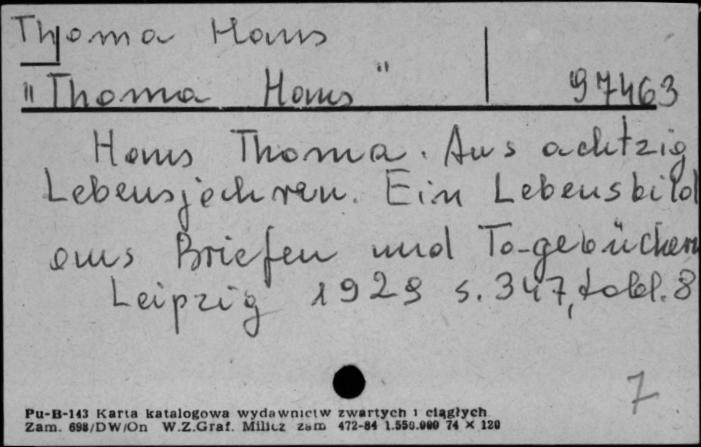 Thoma Hans
"Thoma Hans" 97463
Hans Thoma. Aus achtzig
Lebensjahren. Ein Lebensbild
aus Briefen und Tagebüchern
Leipzig 1929 s. 347, tabl. 8
7
Pu-B-143 Karta katalogowa wydawnictw zwartych i ciągłych
Zam. 698/DW/On W.Z.Graf. Milicz zam 472-84 1.550.000 74 × 120